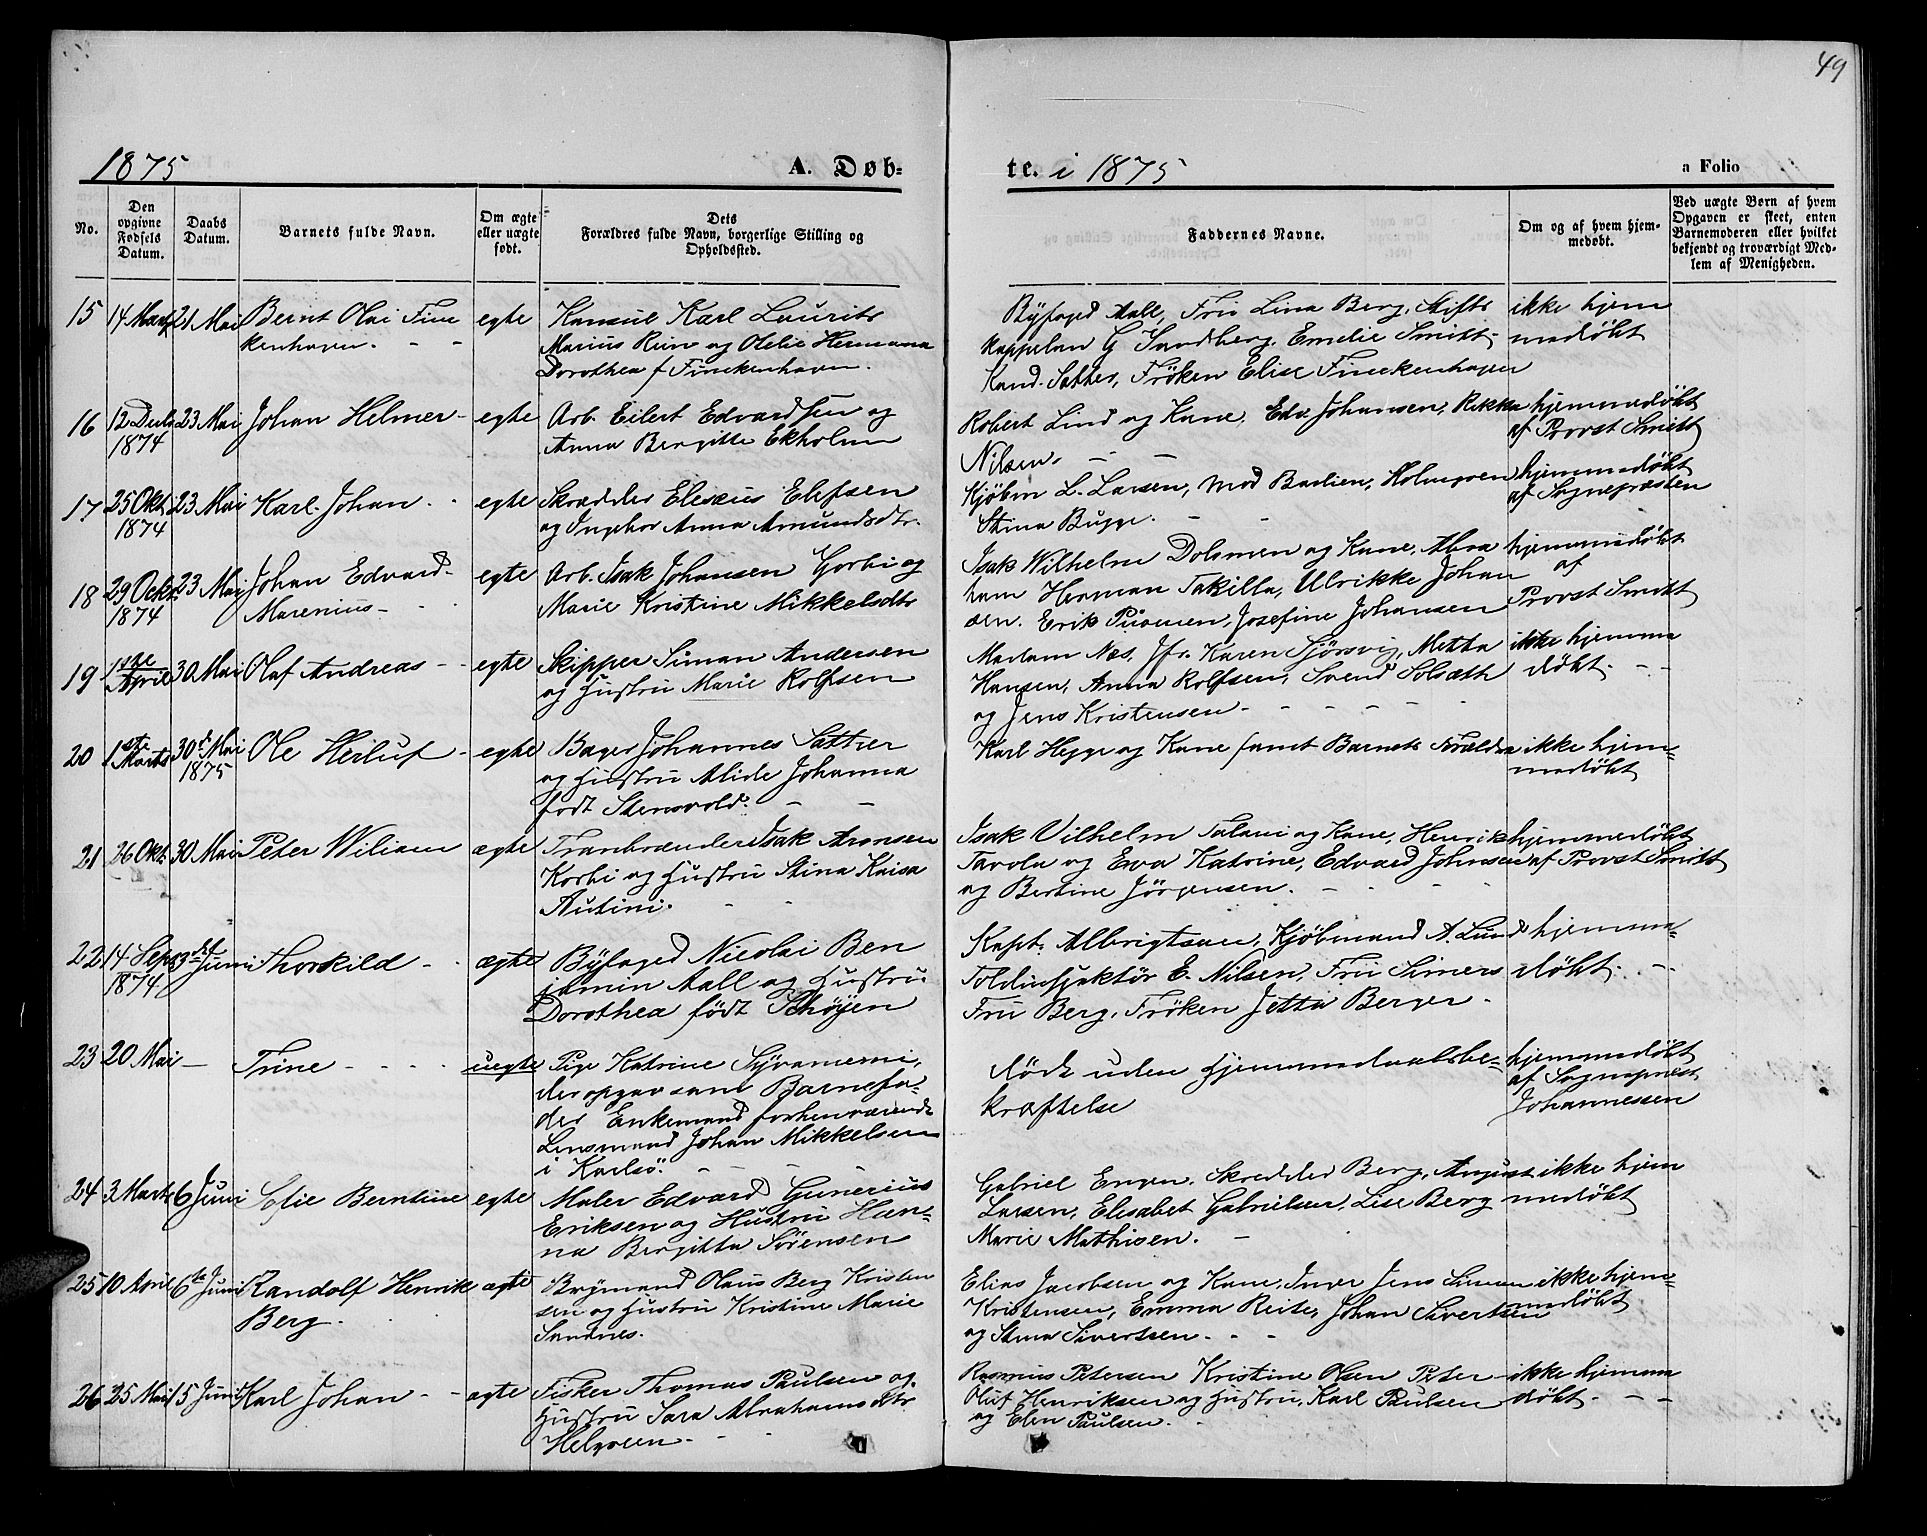 49
1875 A. Døb=
te. i 1875 a Folio
No.
Den opgivne Fødsels Datum.
Daabs Datum.
Barnets fulde Navn.
Om ægte eller uægte født.
Dets Forældres fulde Navn, borgerlige Stilling og Opholdssted.
Faddernes Navne.
Om og af hvem hjem-medøbt.
Ved uægte Børn af hvem Opgaven er skeet, enten Barnemoderen eller hvilket bekjendt og troværdigt Med-lem af Menigheden.
15 14 Marts 21 Mai Bernt Olai Finc
kenhagen. - - egte
Konsul Karl Laurits
Marius Rein og Olelie Hermana
Dorothea f Finckenhagen.
Byfoged Aall, Fru Lina Berg, Stifts
kappelan G Sandberg, Emelie Smitt
Kand. Sætter, Fröken Elise Finckenhagen
ikke hjem
medøbt
16 12 Decbr 23 Mai Johan Helmer - egte
1874
Arb. Eilert Edvardsen og
Anna Bergitte Ekholm
Robert Lind og Kone, Edv Johansen, Rikka
Nilsen. - -
hjemmedöbt
af Provst Smitt
17 25 Okt 23 Mai Karl Johan. - egte
1874
Skrædder Elesæus Elefsen
og Ingebor Anna Amundsdtr.
Kjöbm L. Larsen, Mad Barlien, Holmgren
Stina Bugge. - -
hjemmedöbt
af Sognepræsten
18 29 Octbr 23 Mai Johan Edvard egte
1874 Marenius -
Arb. Isak Johansen Gorbi og
Marie Kristine Mikkelsdtr
Isak Wilhelm Dolomen og Kone, Abra
ham Herman Takilla, Ulrikke Johan
sen. Erik Puomen, Josefine Johansen
hjemmedöbt
af
Provst Smitt
19 April 30 Mai Olaf Andreas - egte
Skipper Simon Andersen
og Hustru Marie Rolfsen
Madam Næs, Jfr. Karen Sjörsvig, Metta
Hansen, Anna Rolfsen, Svend Solsæth
og Jens Kristensen - - - - -
ikke hjemme
døbt. - -
20 1ste Marts 30te Mai Ole Herluf - egte
1875
Bager Johannes Sætter
og Hustru Alide Johanna
født Stensvold. - -
Karl Hegge og Kone samt Barnets Forældre
ikke hjem-
medöbt
21 26 Okt. 30 Mai Peter Wiliam ægte
Tranbrænder Isak Aronsen
Korbi og Hustru Stina Kaisa
Autini. - -
Isak Vilhelm Talani og Kone, Henrik
Tavola og Eva Katrine, Edvard Johnsen
og Bertine Jörgensen. - - - -
hjemmedöbt
af Provst Smitt
22 14 Sep 3die Juni Thorkild - - ægte
1874
Byfoged Nicolai Ben
jamin Aall og Hustru
Dorothea född Schøyen
Kapt. Albrigtsen, Kjöbmand A. Lund
Toldinspektör E. Nilsen, Fru Simers
Fru Berg, Fröken Jetta Berger -
hjemme-
döbt. -
23 20 Mai - Trine - - - - uegte
Pige Katrine Syvaniemi,
der opgav som Barnefa-
der Enkemand forhenværende
Lensmand Johan Mikkelsen
i Karlsö. - - - -
döde uden Hjemmedaabsbe-
kræftelse
hjemmedöbt
af Sognepræst
Johannessen
24 3 Marts 6 Juni Sofie Berntine egte
Maler Edvard Gunerius
Eriksen og Hustru Han=
na Bergitta Sørensen
Gabriel Engen, Skredder Berg, August
Larsen, Elisabet Gabrielsen, Lise Berg
Marie Mathisen. -
ikke hjem
medöbt
25 10 April 6te Juni Randolf Henrik ægte
Berg.
Brygmand Olaus Berg Kristen
sen og Hustru Kristine Marie
Sandnes.
Elias Jacobsen og Kone, Inger Jens Simon
Kristensen, Emma Reite, Johan Sivertsen
og Stina Sivertsen. - -
ikke hjem-
medöbt
26 25 Mai 15 Juni Karl Johan - - ægte
Fisker Thomas Paulsen og
Hustru Sara Abrahamsdtr
Helgesen - - -
Rasmus Petersen Kristine Olsen Peter
Oluf Henriksen og Hustru, Karl Paulsen
og Elen Paulsen. -
ikke hjemme
döbt. - -